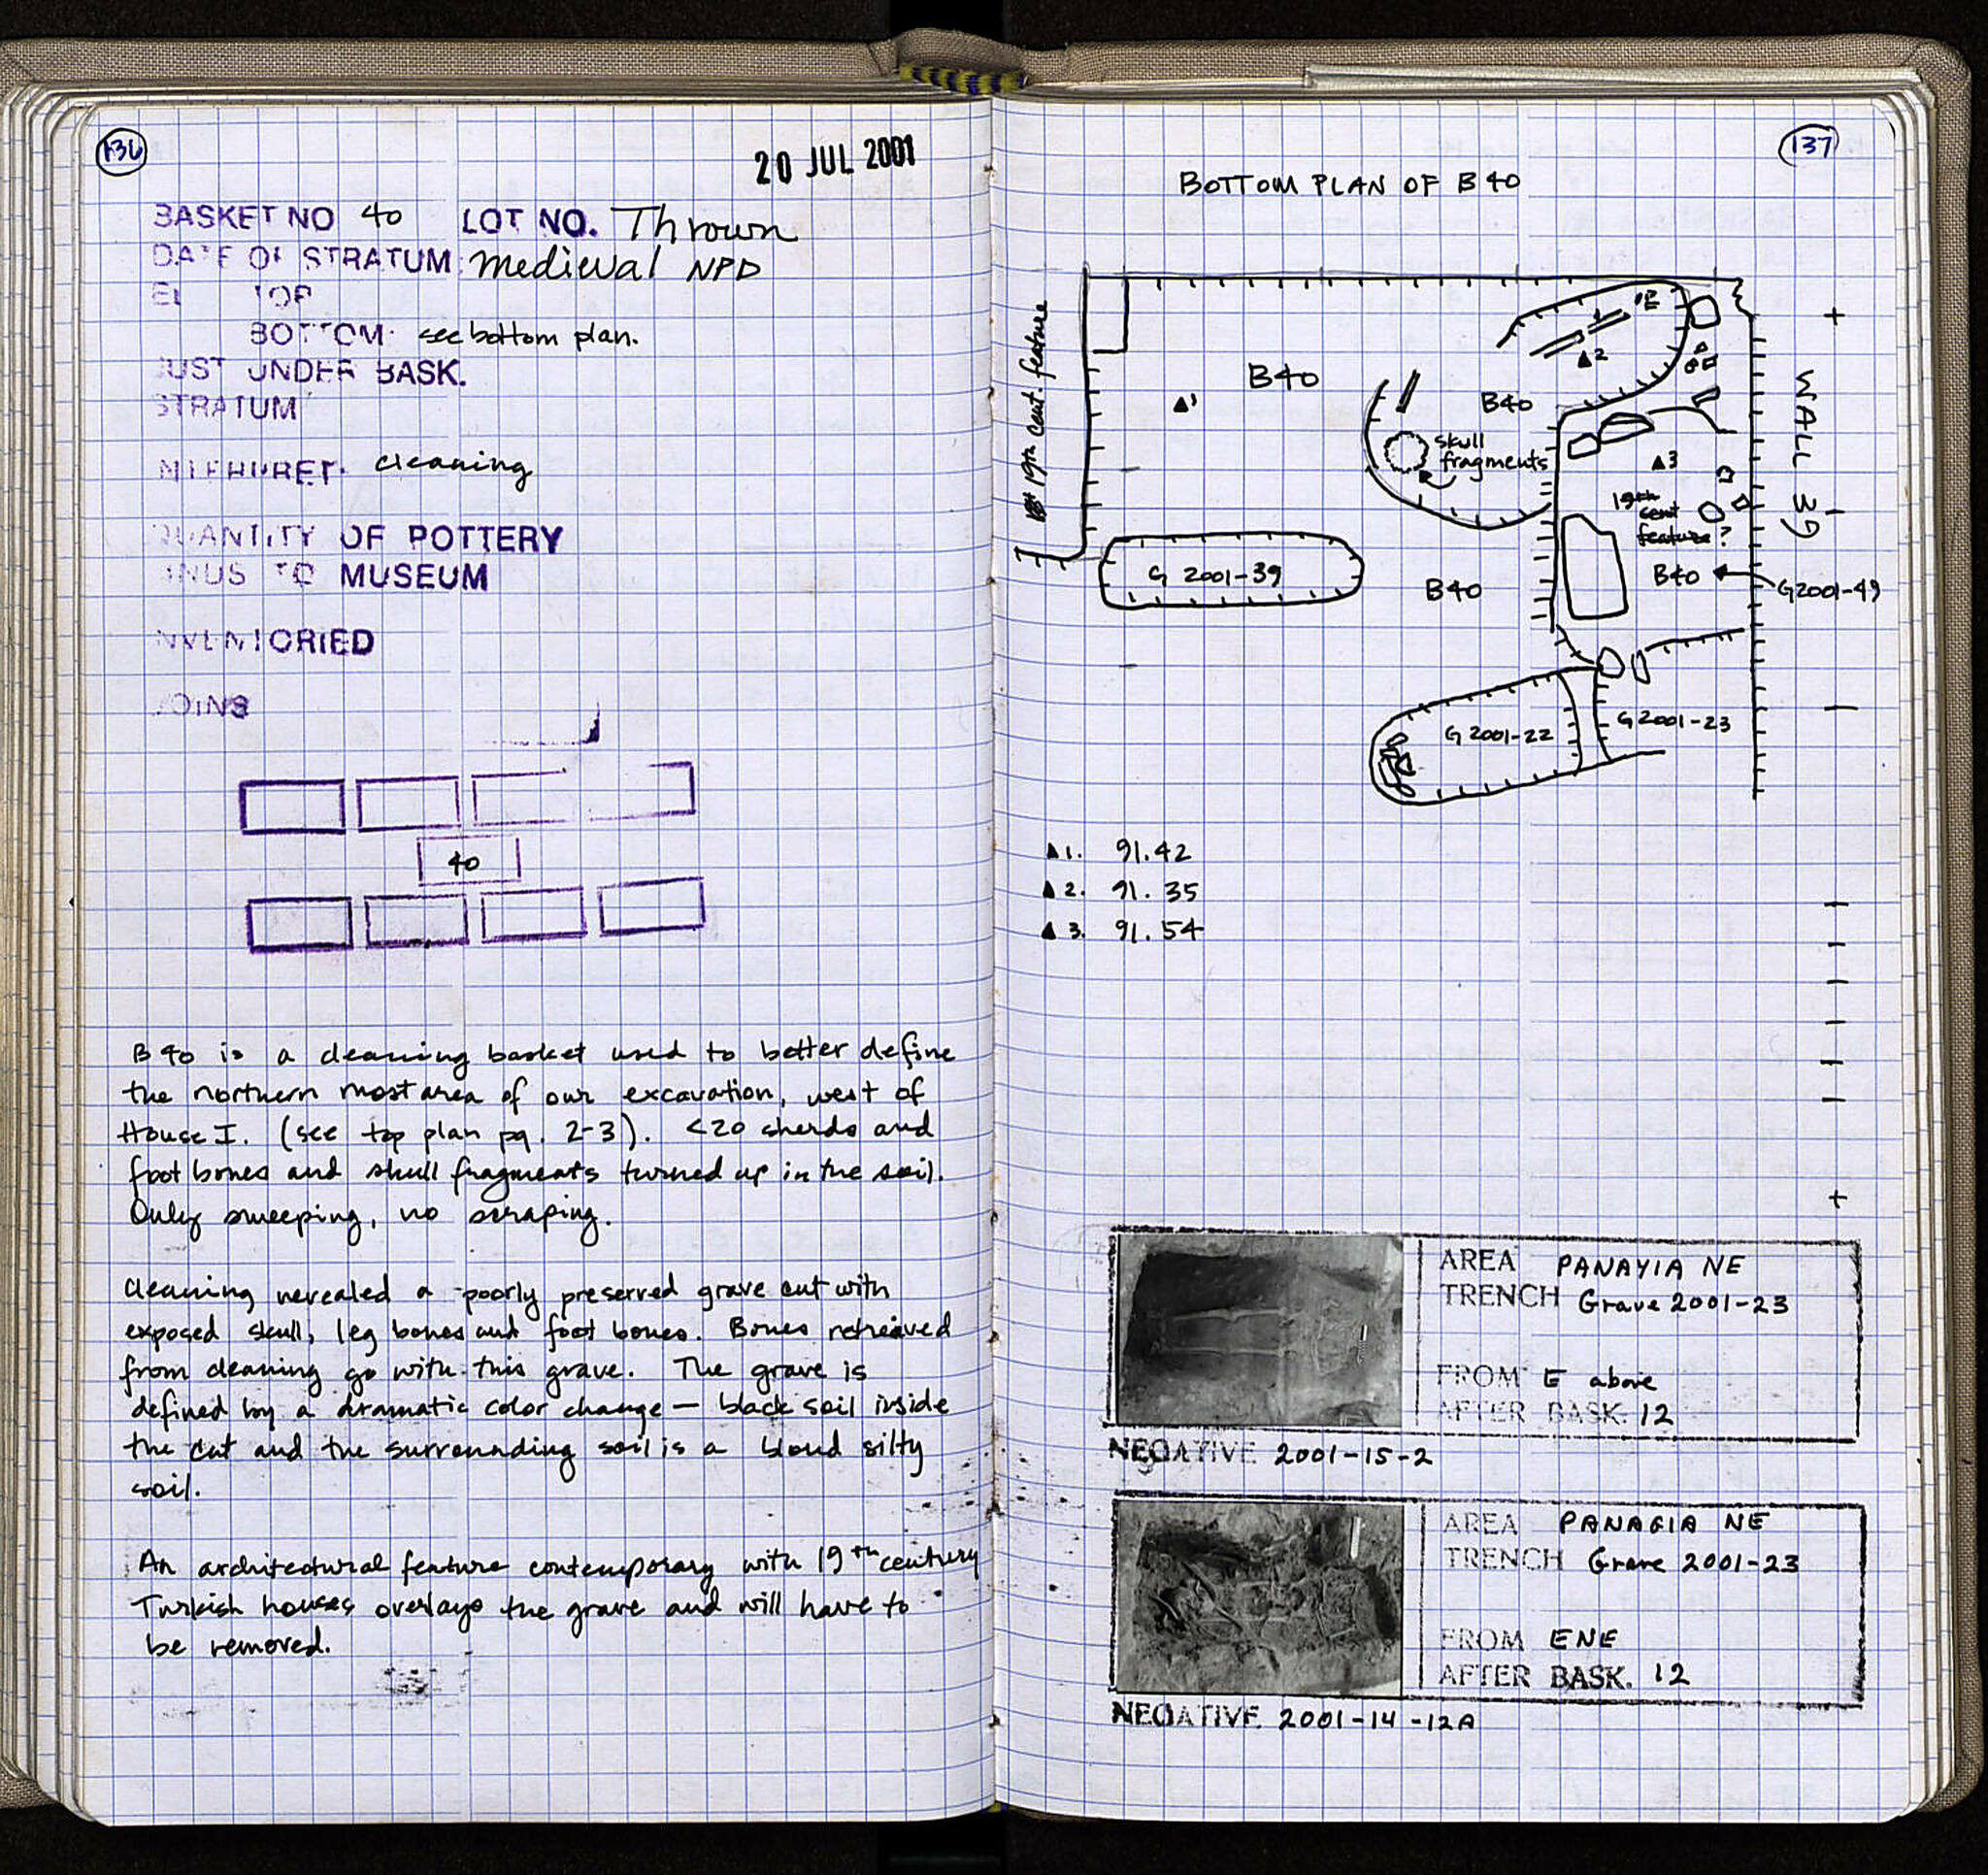 136
20 JUL 2001
BASKET NO 40 LOT NO. Thrown
DATE OF STRATUM medieval NPD
EL TOP
BOTTOM. see bottom plan.
JUST UNDER BASK.
STRATUM
INTERPRET. cleaning
QUANTITY OF POTTERY
MINUS TO MUSEUM
INVENTORIED
JOINS
40
B 40 is a cleaning basket used to better define
the northern most area of our excavation, west of
House I. (see top plan pg. 2-3). <20 sherds and
foot bones and skull fragments turned up in the soil.
Only sweeping, no scraping.
Cleaning revealed a poorly preserved grave cut with
exposed skull, leg bones and foot bones. Bones retreived
from cleaning go with this grave. The grave is
defined by a dramatic color change — black soil inside
the cut and the surrounding soil is a blond silty
soil.
An architectural feature contemporary with 19th century
Turkish houses overlays the grave and will have to
be removed.
137
BOTTOM PLAN OF B 40
19th cent. feature
B40
▲1
▲2
B40
skull
fragments
▲3
19th
cent
feature?
WALL 39
G 2001-39
B40
B40
G2001-49
G 2001-22
G 2001-23
▲1. 91.42
▲2. 91.35
▲3. 91.54
AREA PANAYIA NE
TRENCH Grave 2001-23
FROM E above
AFTER BASK. 12
NEGATIVE 2001-15-2
AREA PANAGIA NE
TRENCH Grave 2001-23
FROM ENE
AFTER BASK. 12
NEGATIVE 2001-14-12A